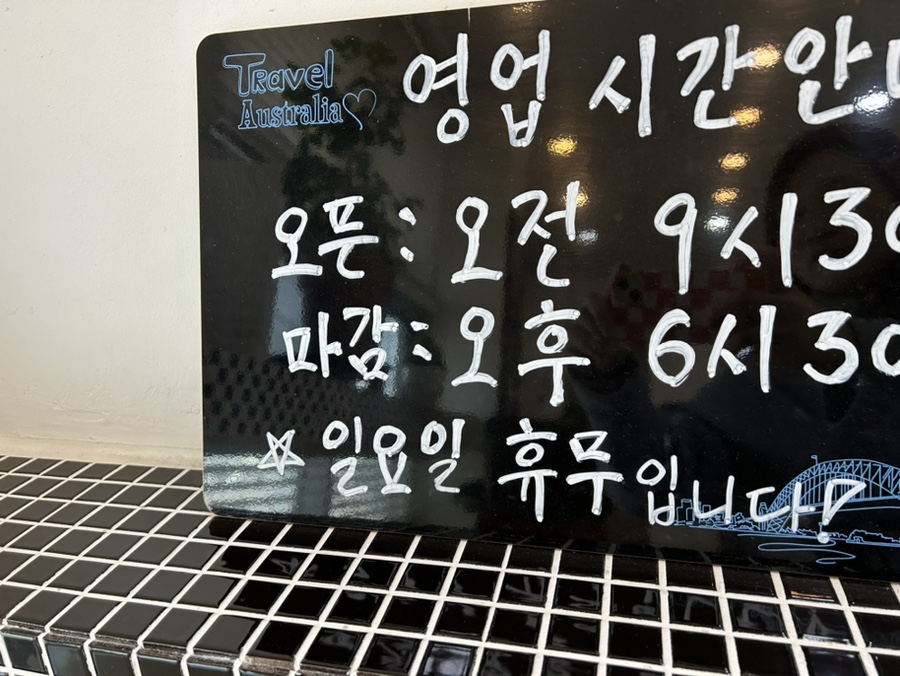 Travel
Australia
영업 시간
오픈: 오전 9시 30
마감: 오후 6시 30
☆ 일요일 휴무입니다!